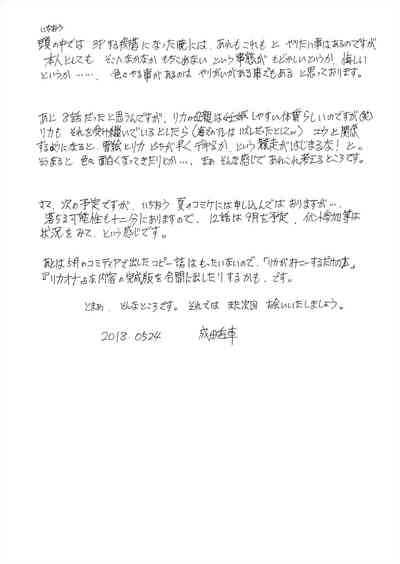 いちおう
頭の中では 3Pする段階になった暁には、あれもこれも と やりたい事はあるのですが
本人としても そこへなかなか もちこめない という事態が もどかしいというか、悔しい
というか……、色々やる事があるのは やりがいがある事でもある と思っております。
あと 8話だったと思うんですが、リカの母親は妊娠しやすい体質らしいのですが(笑)
リカも それを受け継いでいるとしたら
コウと関係
するめになると、
とリカ どちらが早く
か、という競走がはじまるな! と。
そうなると 色々面白くなってきたりとか…、まぁ そんな感じで あれこれ考えるところです。
さて、次の予定ですが、いちおう 夏のコミケには申し込んでは ありますが…、
落ちる可能性も十二分にありますので、12話は9月を予定、イベント参加等は
状況をみて、という感じです。
あとは5月のコミティアで出したコピー誌はもったいないので、「リカがオナニーするだけの本」
『リカオナ』な内容の完成版を合間に出したりするかも、です。
とまぁ、どんなところです。それでは また次回 お会いいたしましょう。
2018.0524
成田香車